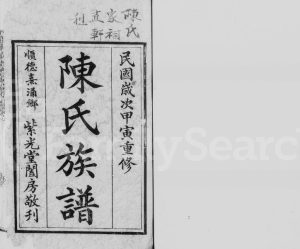 民國歲次甲寅重修
陳氏族譜
順德熹涌鄉
紫光堂闔房敬刊
陳氏
家祠
刊
FamilySearch